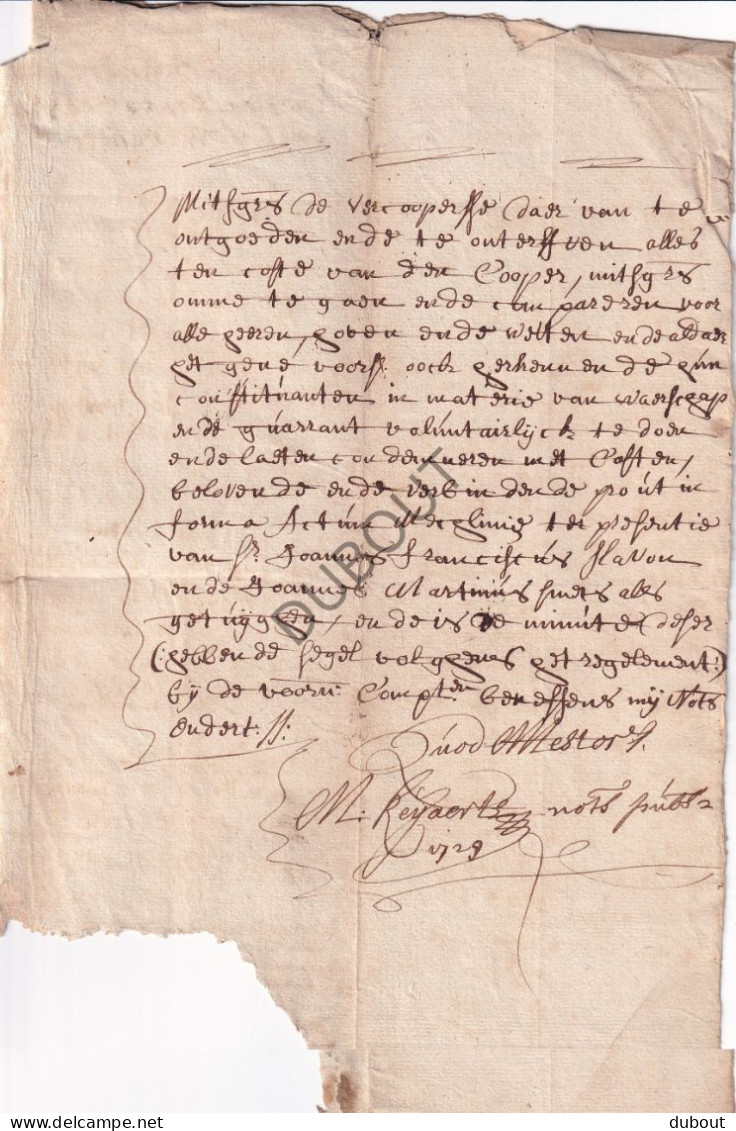 Mitsgrs de vercoopersse daer van te
ontgoeden ende te ontersven alles
ten coste van den Cooper, mitsgrs
omme te gaen ende compareren voor
alle heeren, hoven ende wetten ende aldaer
het gene voors. oock herkennen de hun
constituanten in materie van waerschap
ende guarrant voluntairlyck te doen
ende laeten condemneren met Costen,
belovende ende verbindende prout in
forma Actum Mechlinie ter presentie
van Sr. Joannes Franciscus Slavon
ende Joannes Martinus smets als
getuyghen, ende is de minute deser
(: hebbende segel volghens het reglement:)
by de voorn: Compten beneffens my Nots
ondert. SS:
Quod Attestor S.
M: Keyaerts nots pubs
1729
DUBOUT
delcampe.net
dubout